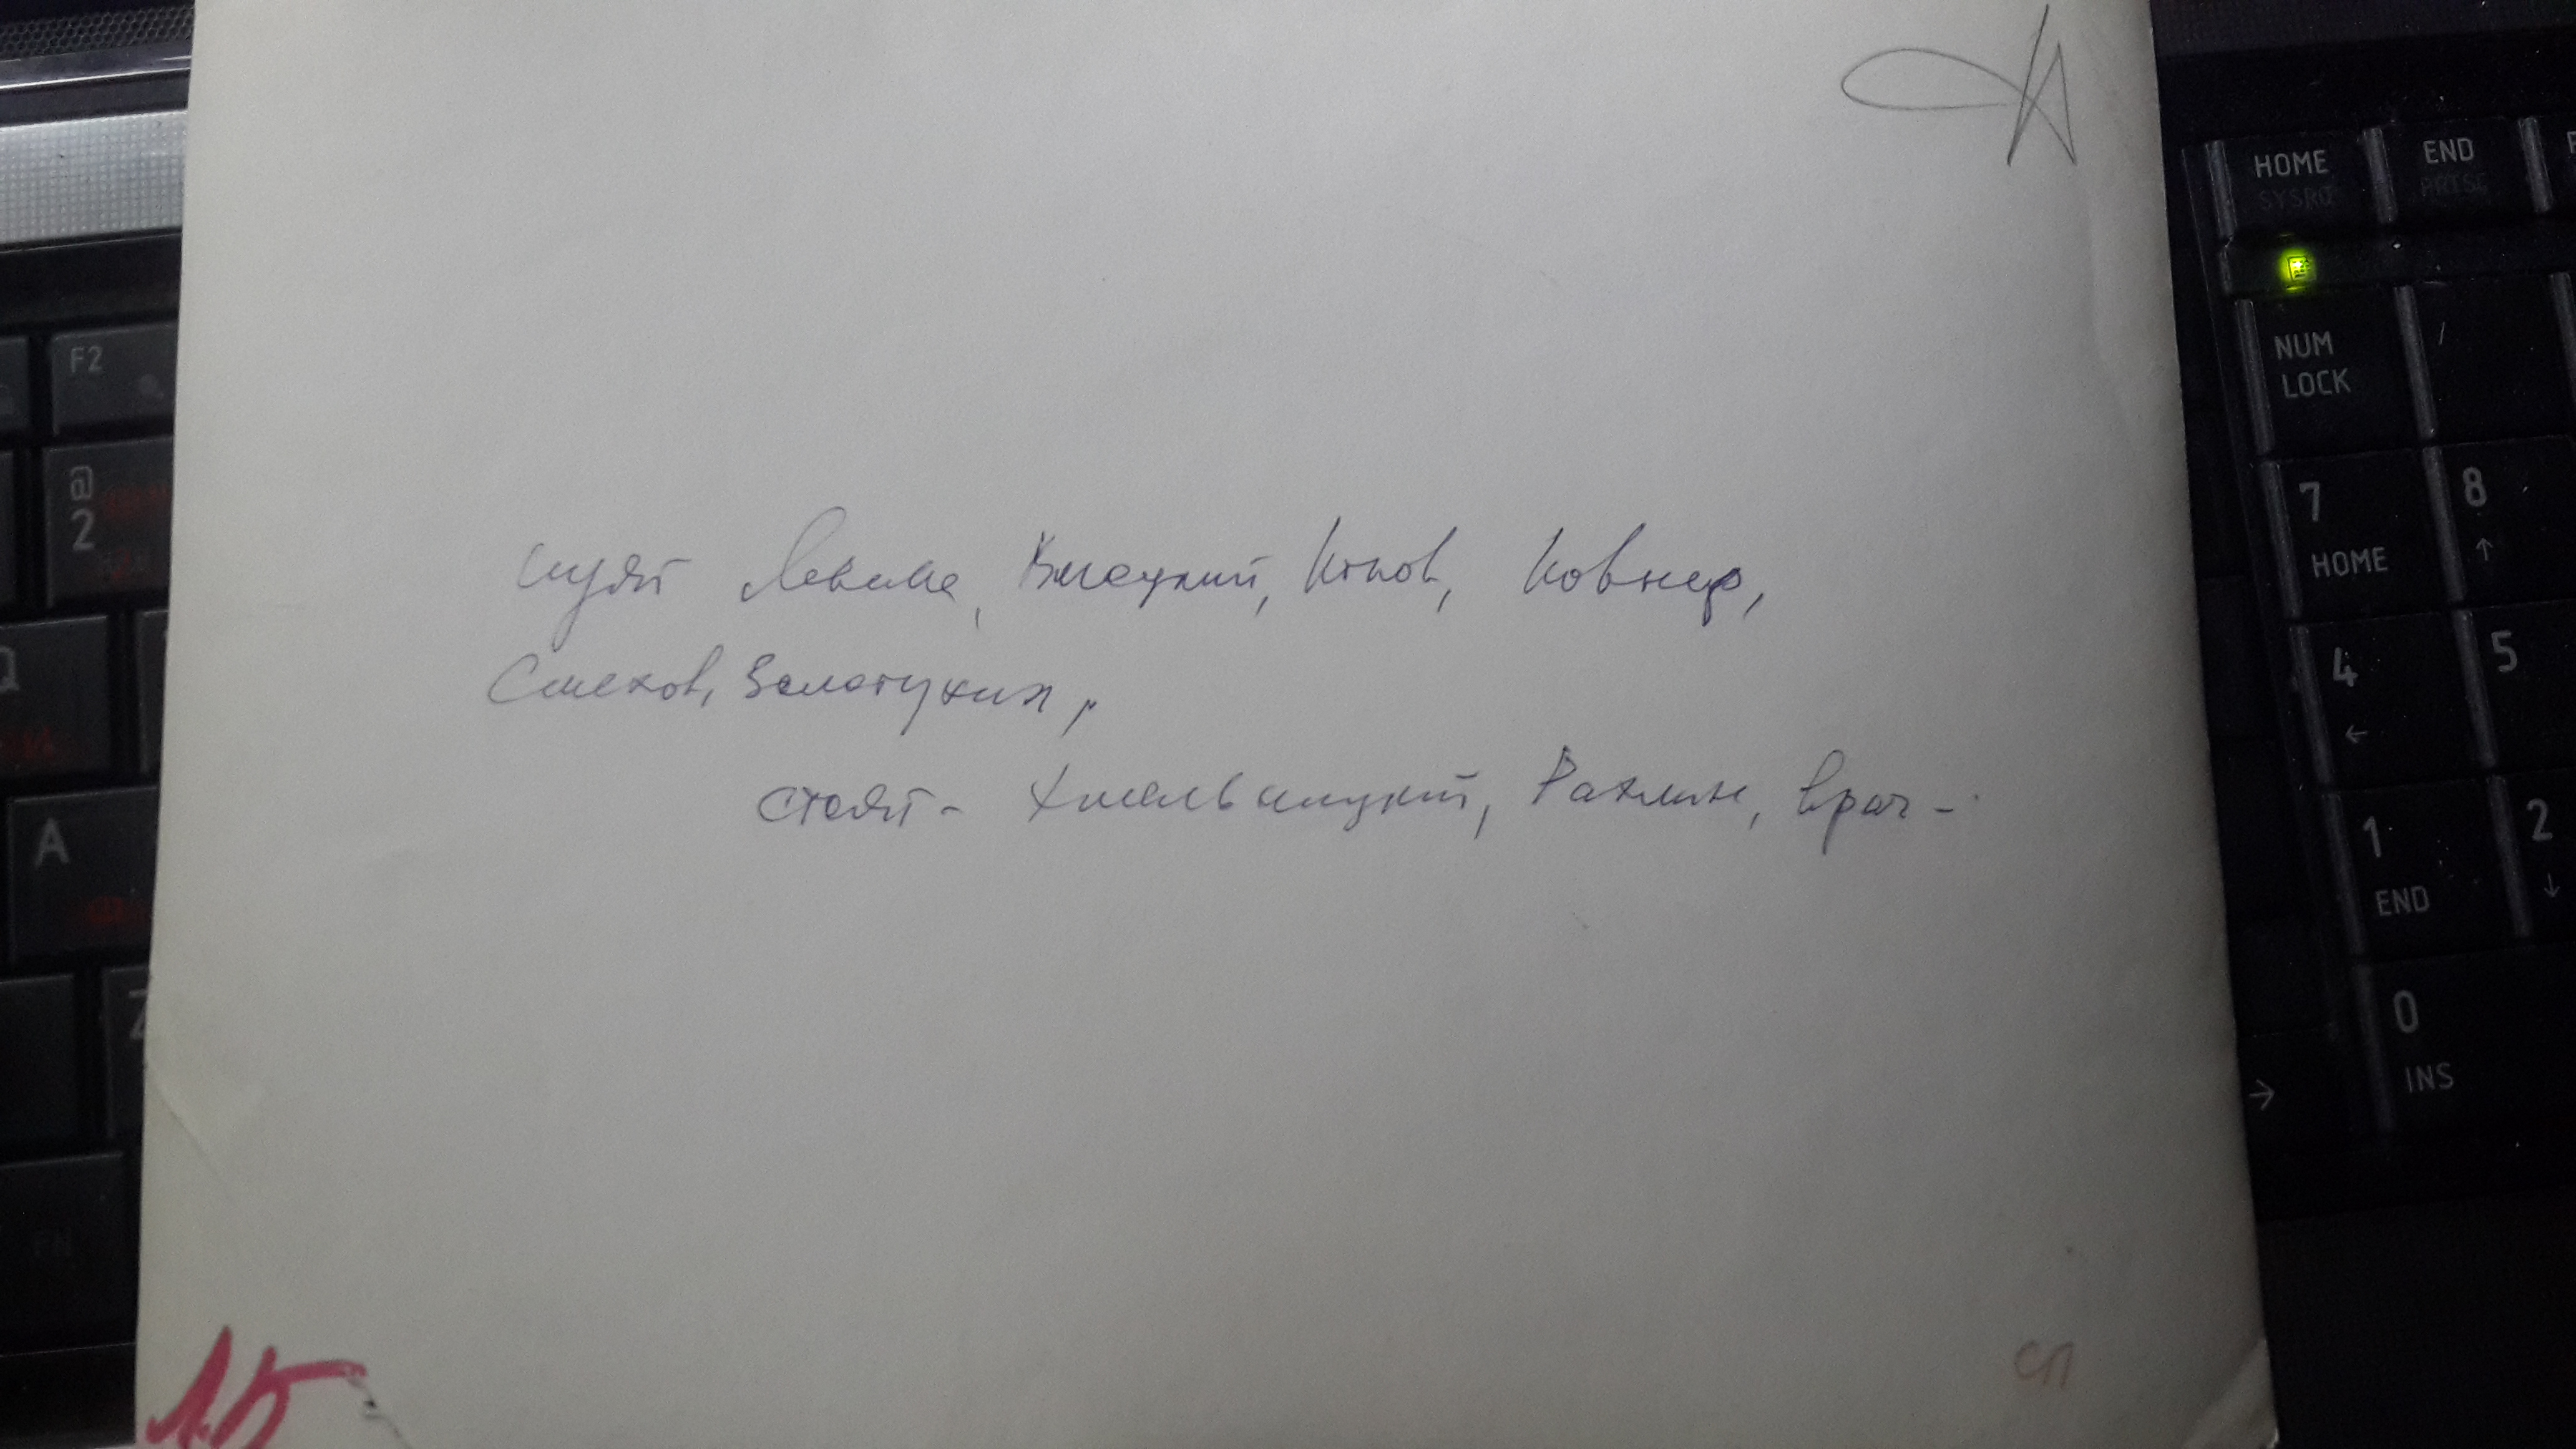 HOME
SYSRQ
END
PRTSC
F2
NUM
LOCK
/
@
2
7
HOME
8
↑
сидят Левина, Высоцкий, Попов, Ковнер,
Смехов, Золотухин,
Q
4
←
5
стоят - Хмельницкий, Рахлин, врач -
A
1
END
2
↓
Z
0
INS
→
FN
СП